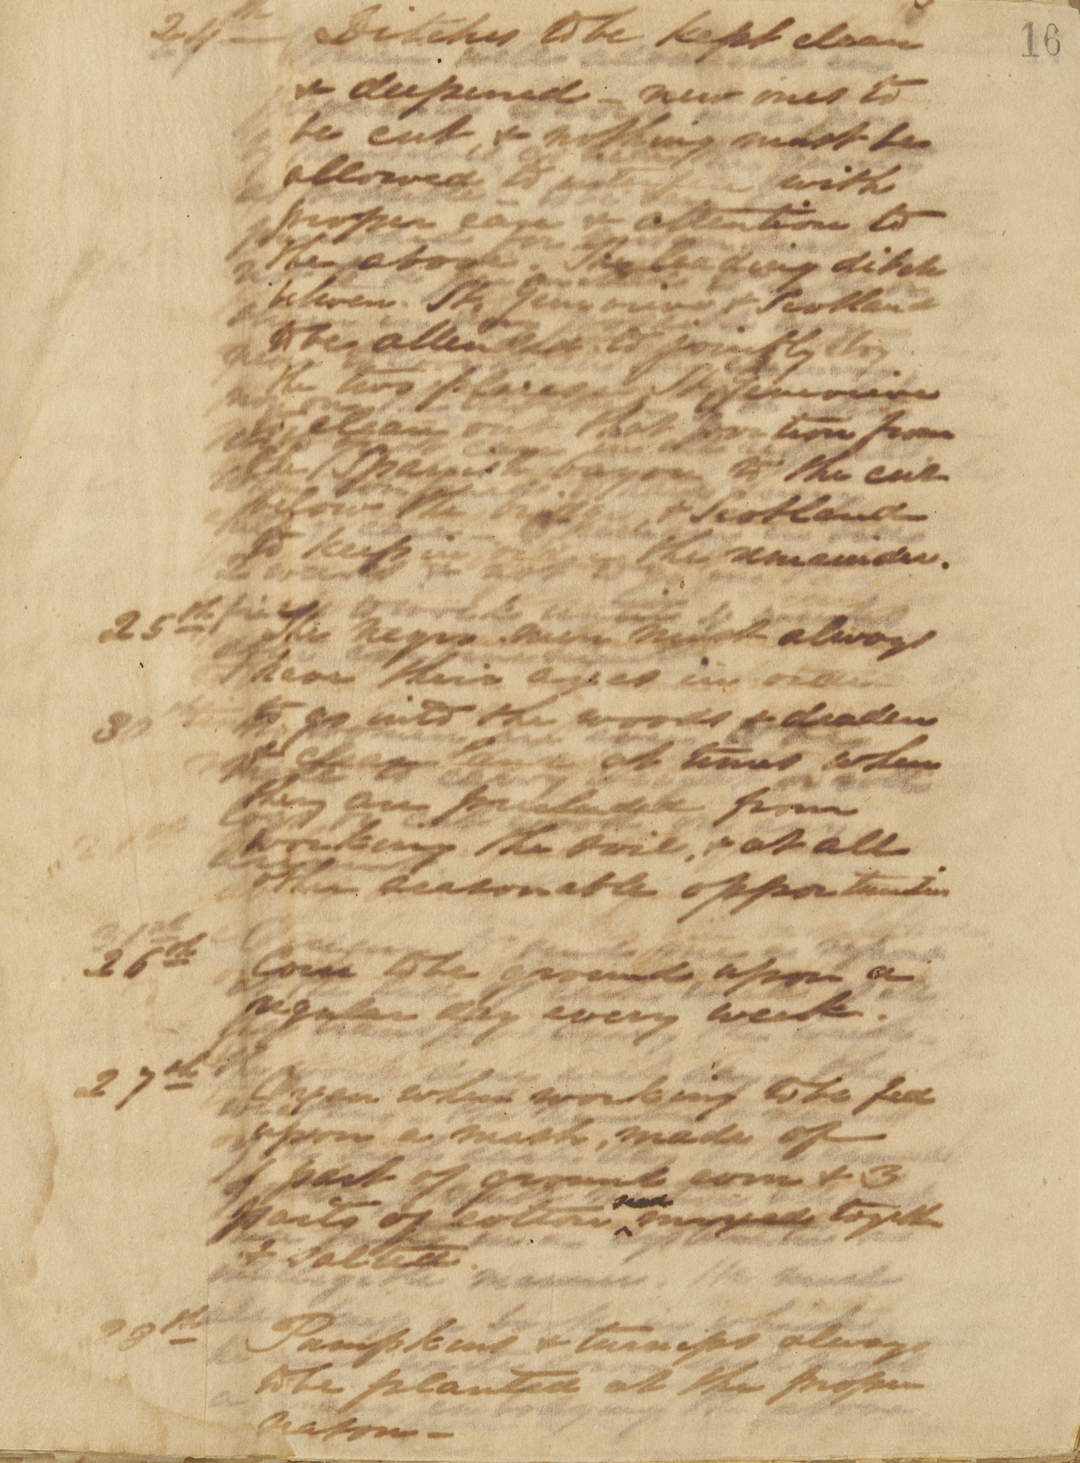 16
24th Ditches to be kept clean
& deepened - new ones to
be cut, & nothing must be
allowed to interfere with
proper care & attention to
the above. The leading ditch
between St. Genevieve & Scotland
to be attended to jointly by
the two places. St. Genevieve
to clean out that portion from
the Spanish bayou to the cut
below the bridge, & Scotland
to keep in order the remainder.
25th The negro men must always
have their axes in order
to go into the woods & deaden
& clear land at times when
they are precluded from
working the soil, & at all
other seasonable opportunities
26th Corn to be ground upon a
regular day every week.
27th Oxen when working to be fed
upon a mash, made of
1 part of ground corn & 3
parts of cotton seed mixed togeth
& salted.
28th Pumpkins & turnips always
to be planted at the proper
season -